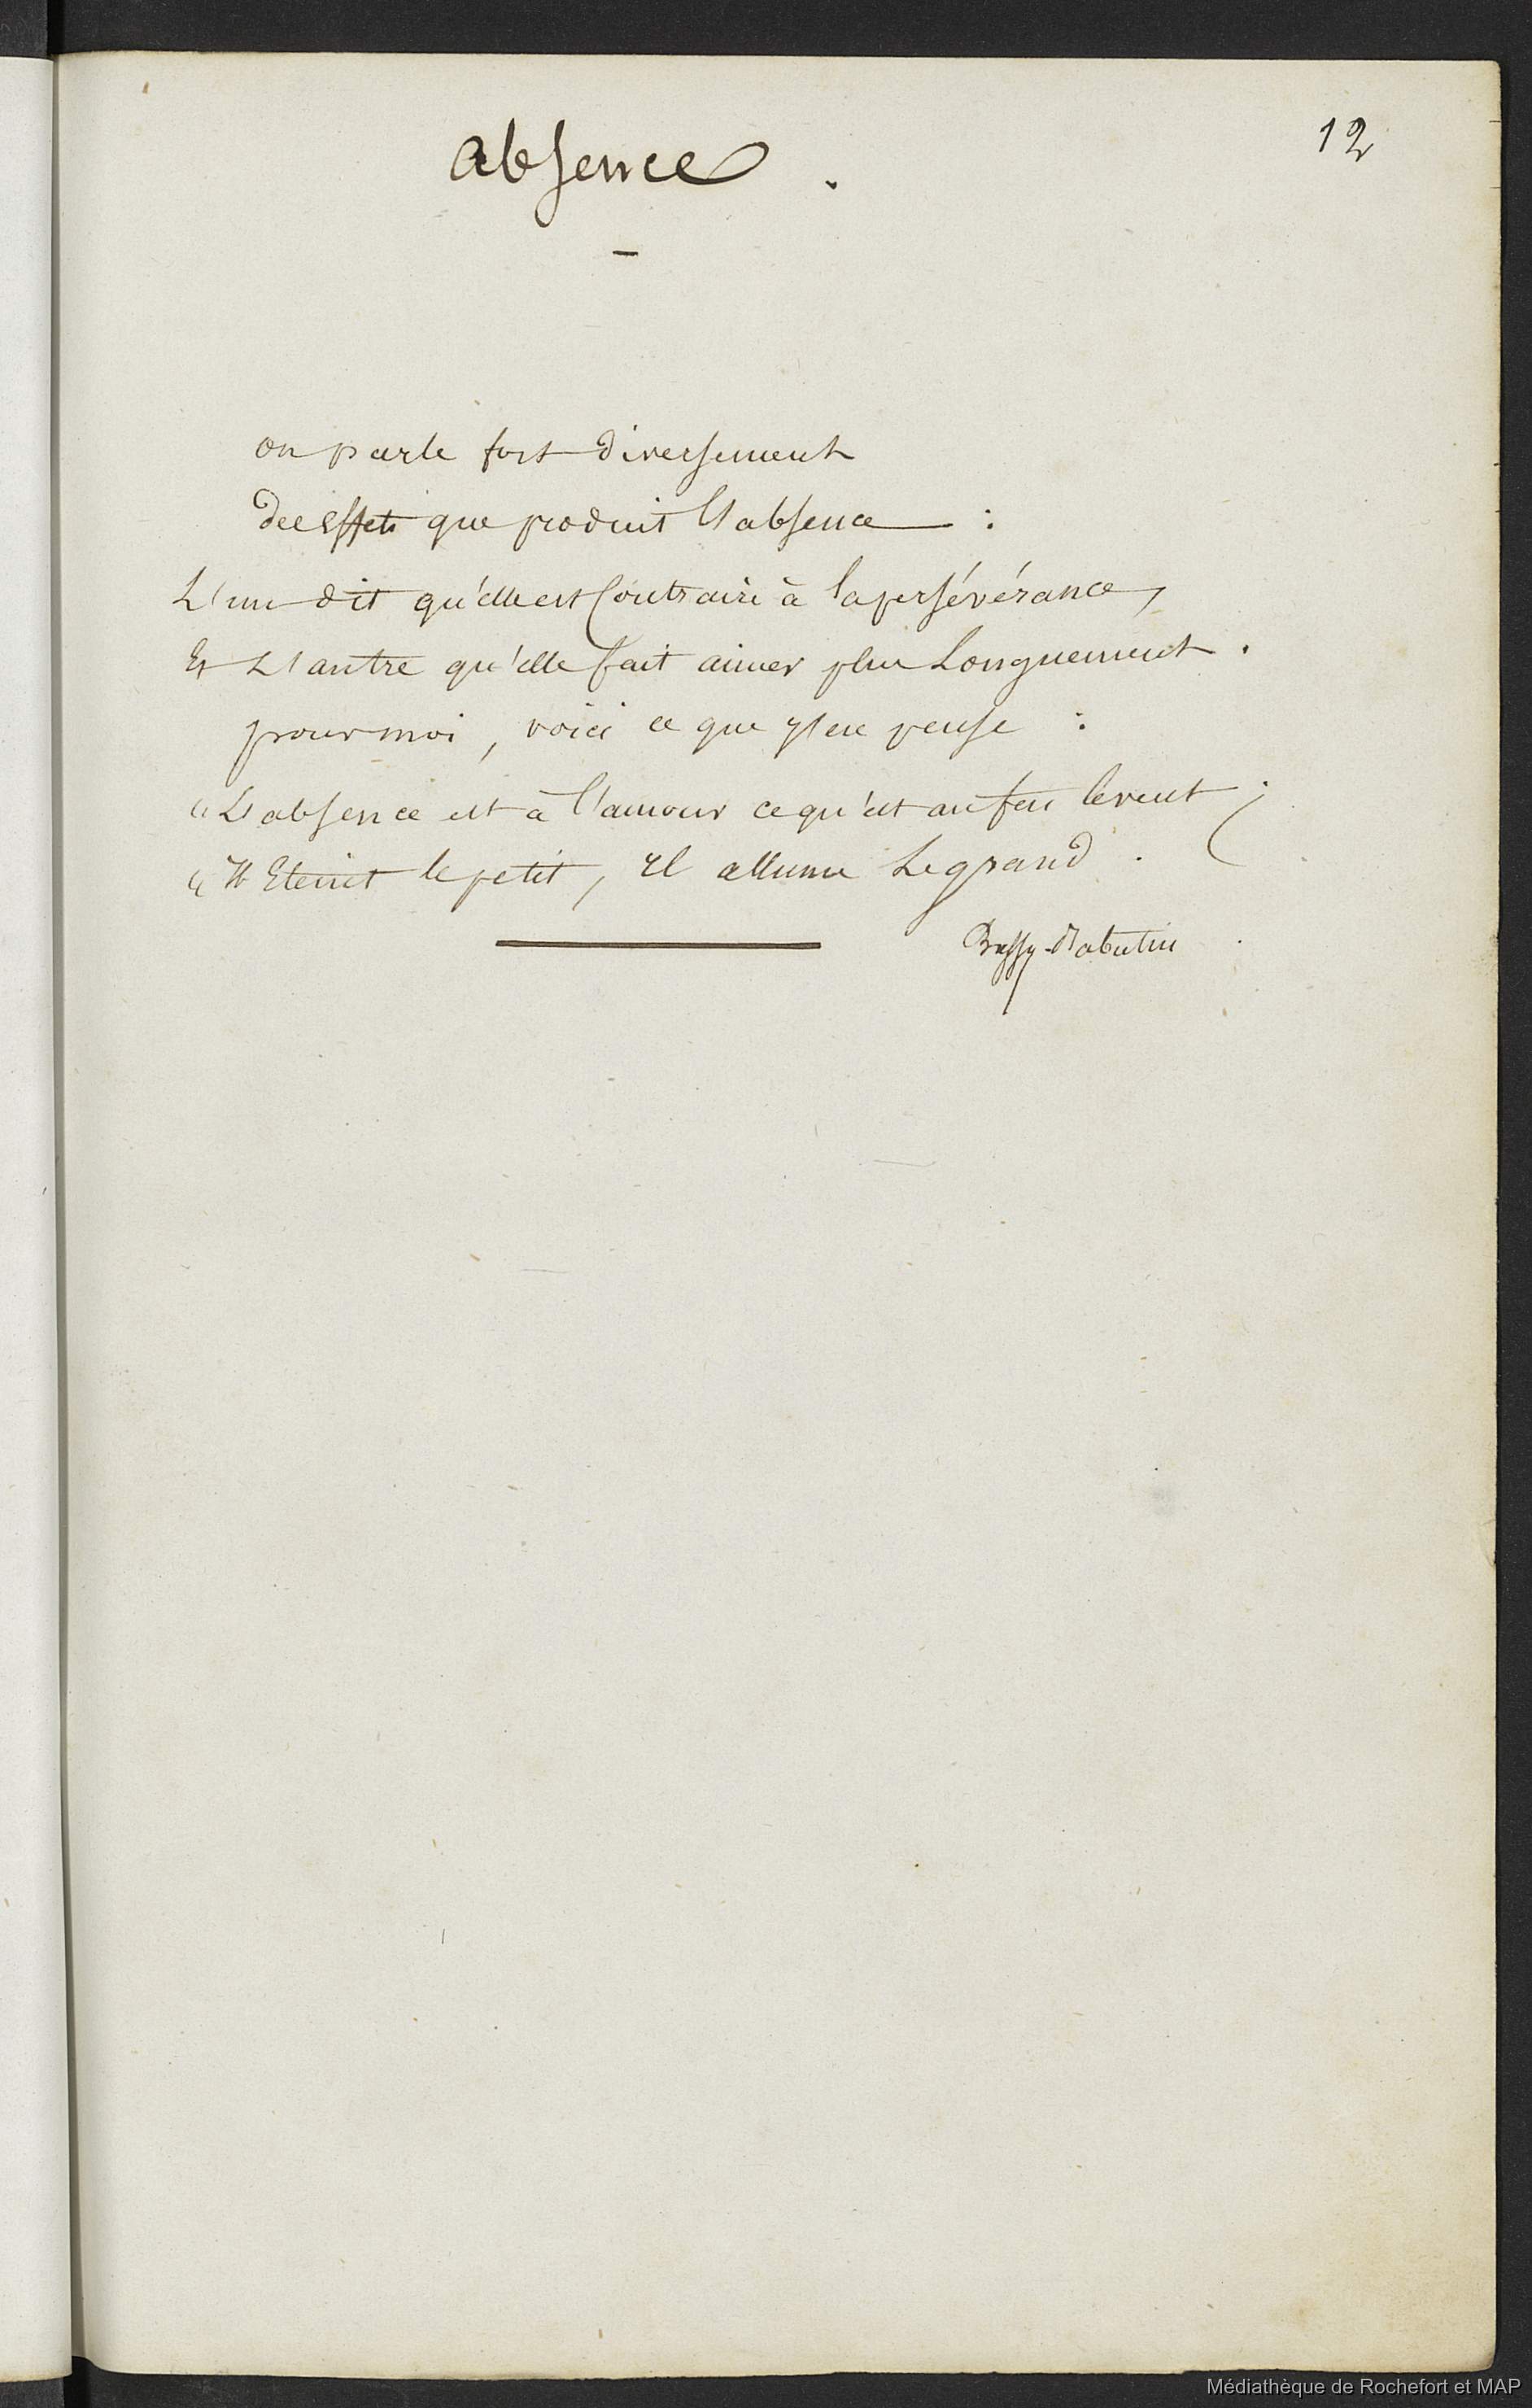 12
absence.
on parle fort diversement
des Effets que produit l'absence :
L'un dit qu'elle est Contraire à la persévérance,
Et L'autre qu'elle fait aimer plus Longuement.
pour moi, voici ce que j'en pense :
"L'absence est à l'amour ce qu'est au feu le vent ;
"Il Eteint le petit, il allume Le grand.
Bussy-Rabutin.
Médiathèque de Rochefort et MAP